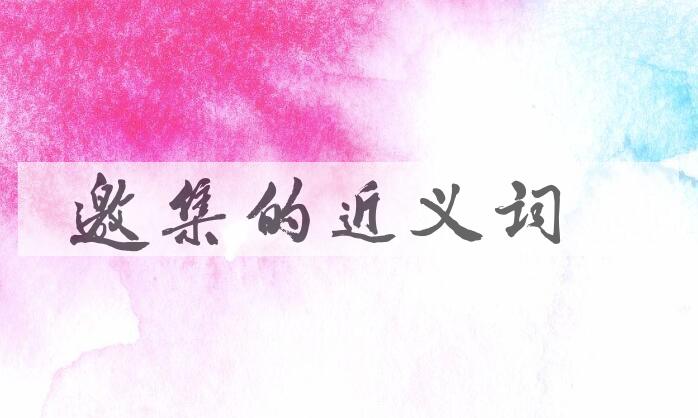 邀集的近义词